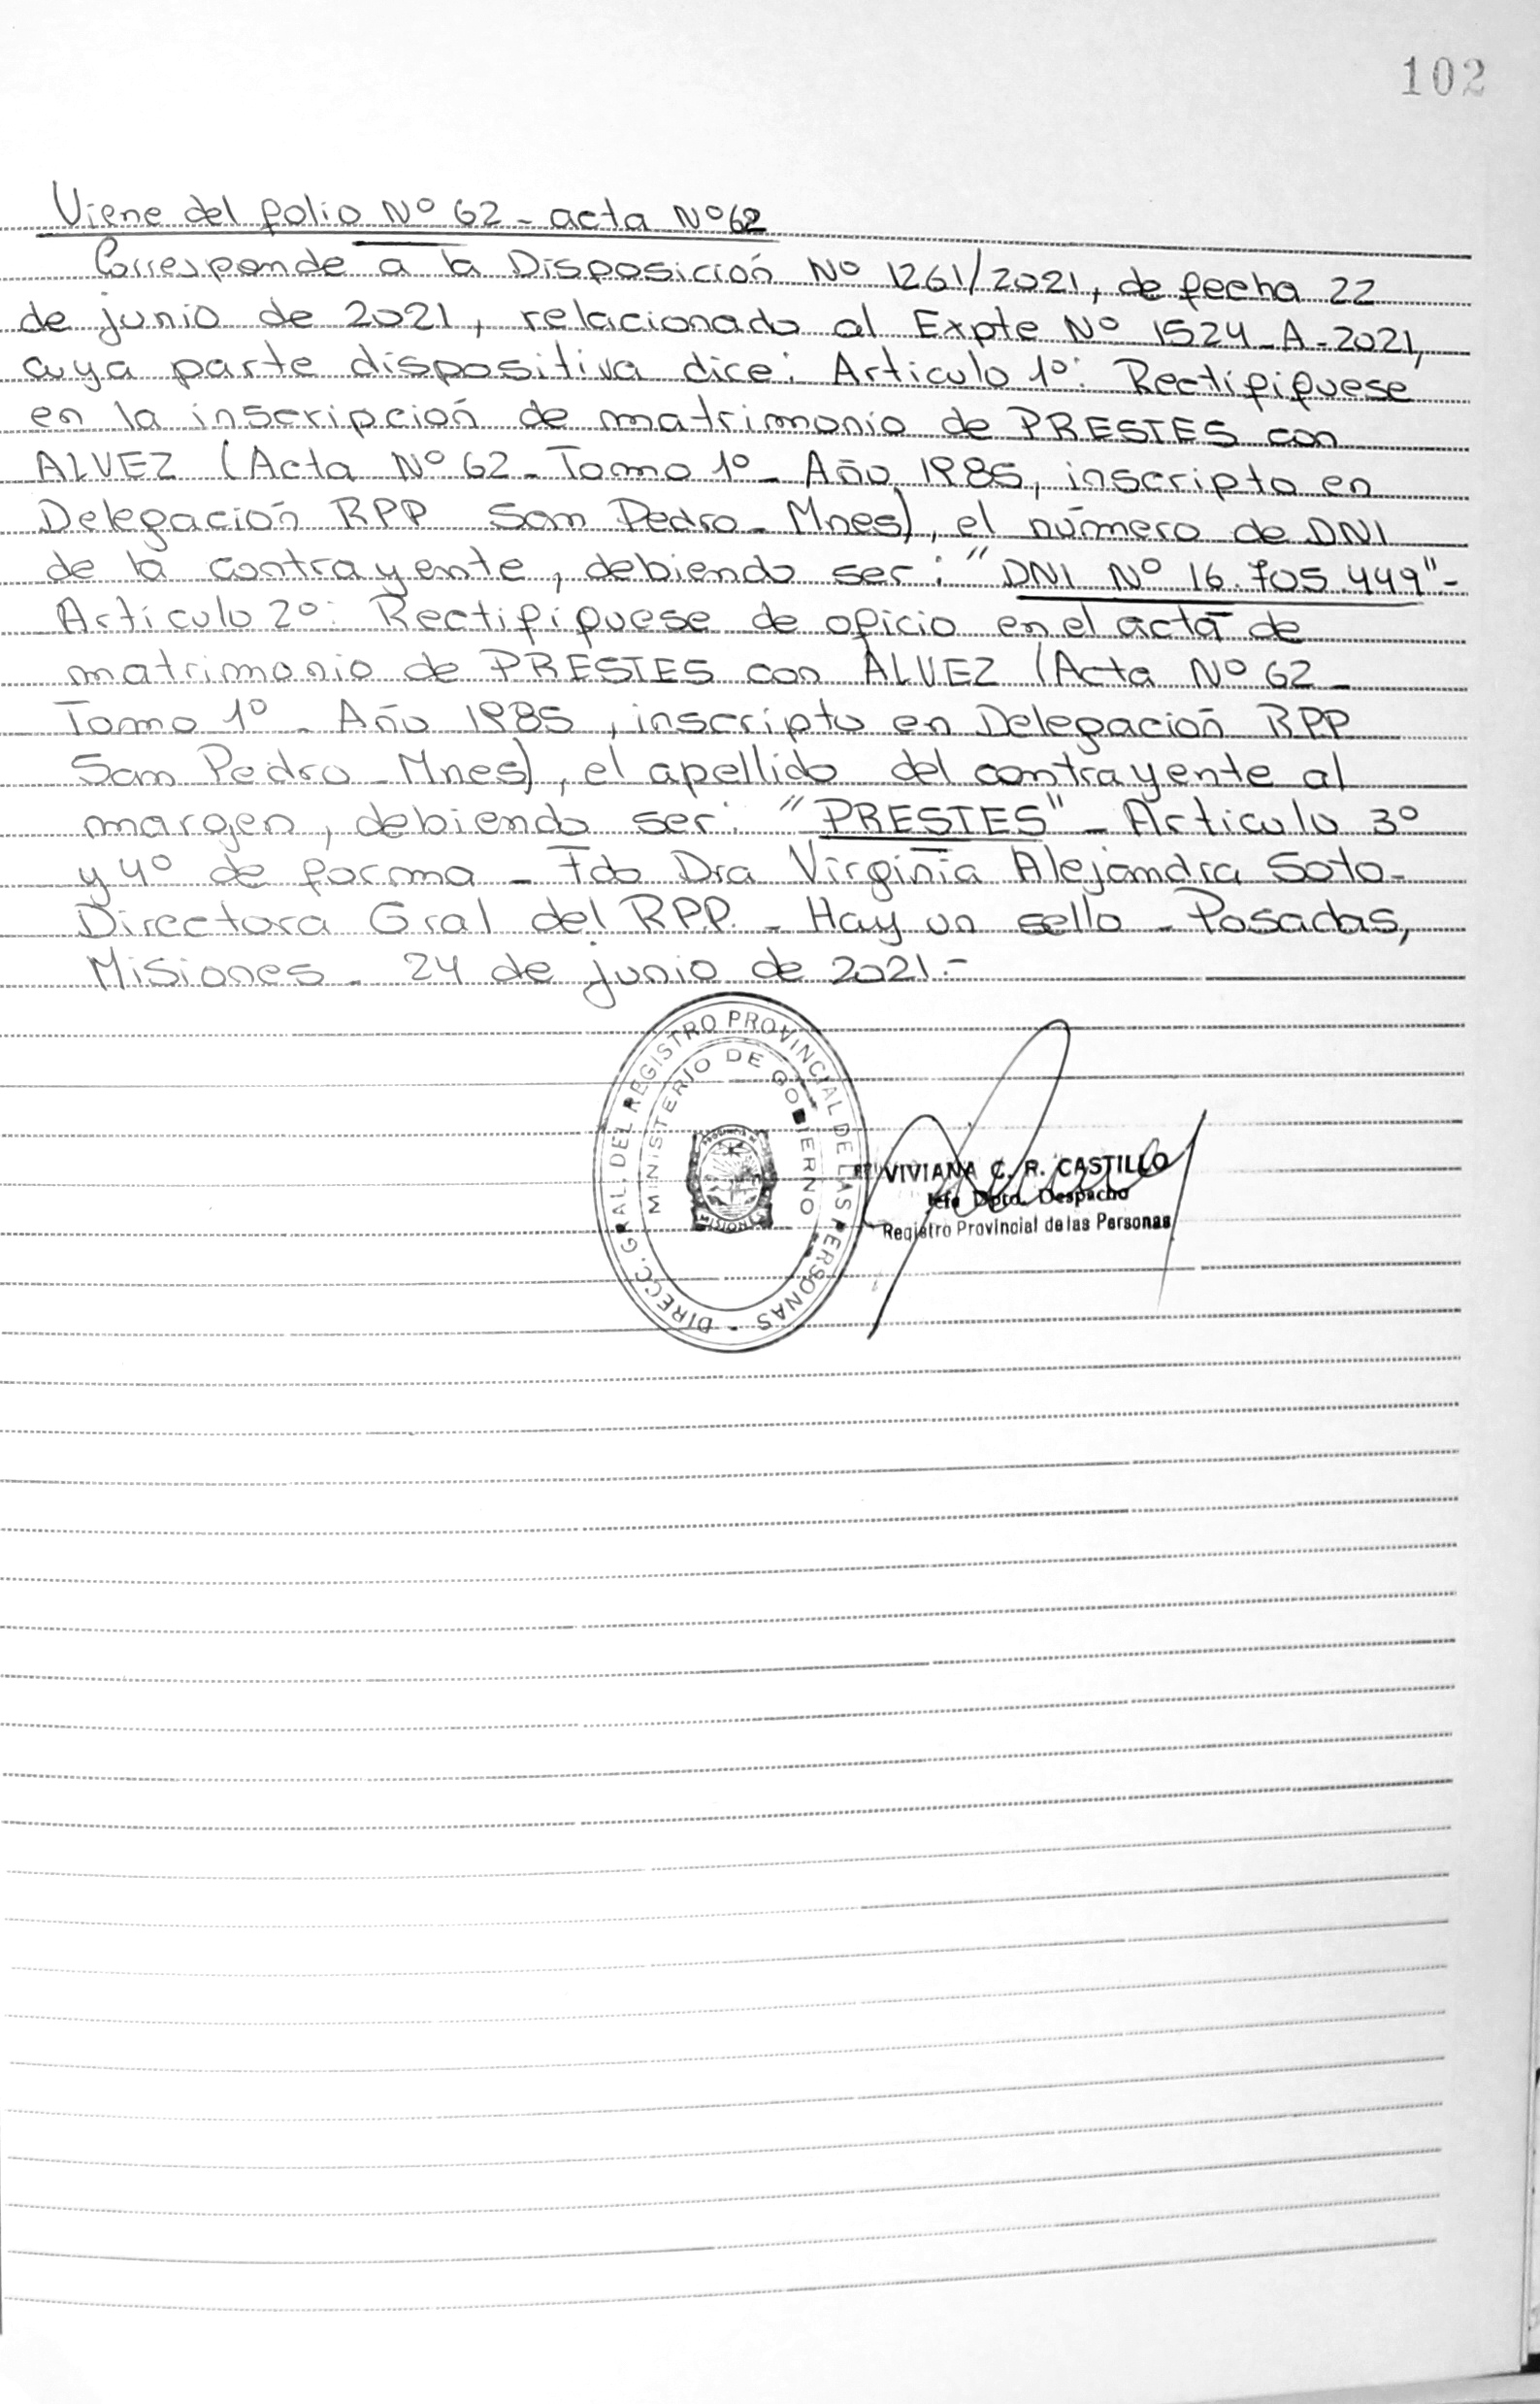 102
Viene del folio Nº 62 - acta Nº 62
Corresponde a la Disposición Nº 1261/2021, de fecha 22
de junio de 2021, relacionado al Expte Nº 1524-A-2021,
cuya parte dispositiva dice: Articulo 1º: Rectifíquese
en la inscripción de matrimonio de PRESTES con
ALVEZ (Acta Nº 62 - Tomo 1º - Año 1985, inscripto en
Delegación RPP San Pedro - Mnes), el número de DNI
de la contrayente, debiendo ser: "DNI Nº 16.705.449"-
Artículo 2º: Rectifíquese de oficio en el acta de
matrimonio de PRESTES con ALVEZ (Acta Nº 62 -
Tomo 1º - Año 1985, inscripto en Delegación RPP
San Pedro - Mnes), el apellido del contrayente al
margen, debiendo ser: "PRESTES" - Articulo 3º
y 4º de forma - Fdo Dra Virginia Alejandra Soto -
Directora Gral del RPP. - Hay un sello - Posadas,
Misiones - 24 de junio de 2021.-
DIRECC. GRAL. DEL REGISTRO PROVINCIAL DE LAS PERSONAS -
MINISTERIO DE GOBIERNO
VIVIANA C. R. CASTILLO
Jefe Dpto. Despacho
Registro Provincial de las Personas